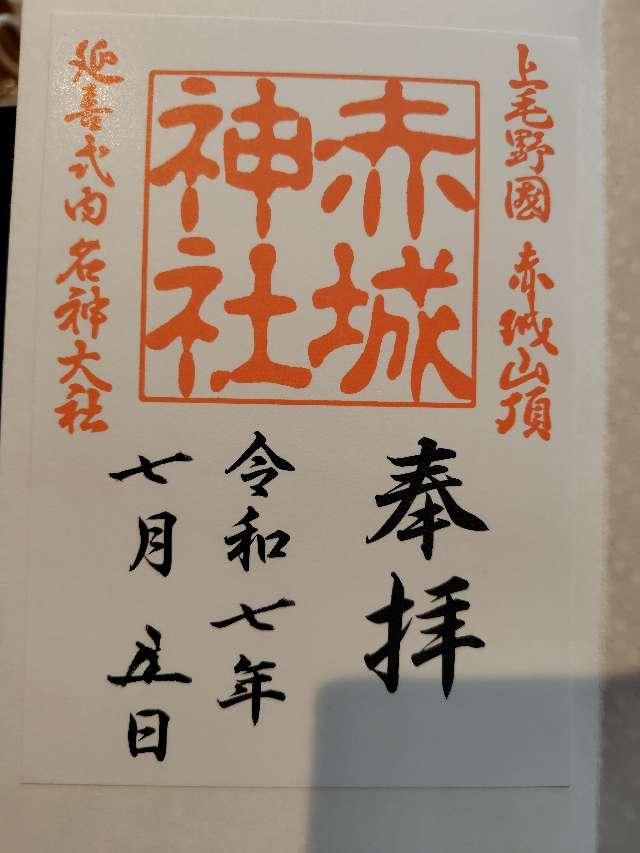 上毛野國 赤城山頂
赤城
神社
延喜式内 名神大社
奉拝
令和七年
七月 五日